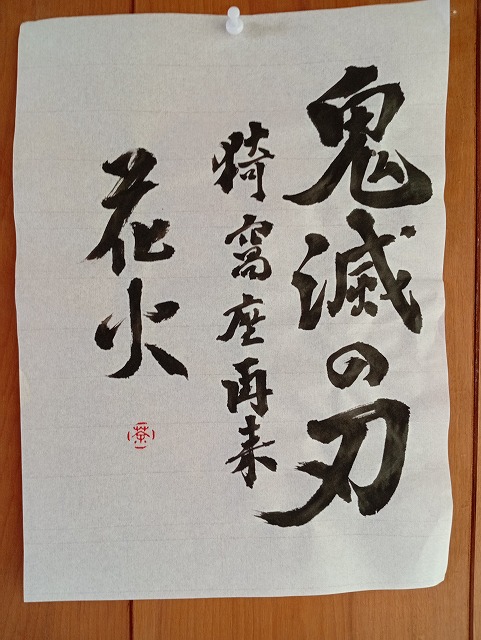 鬼滅の刃
猗窩座再来
花火
茶